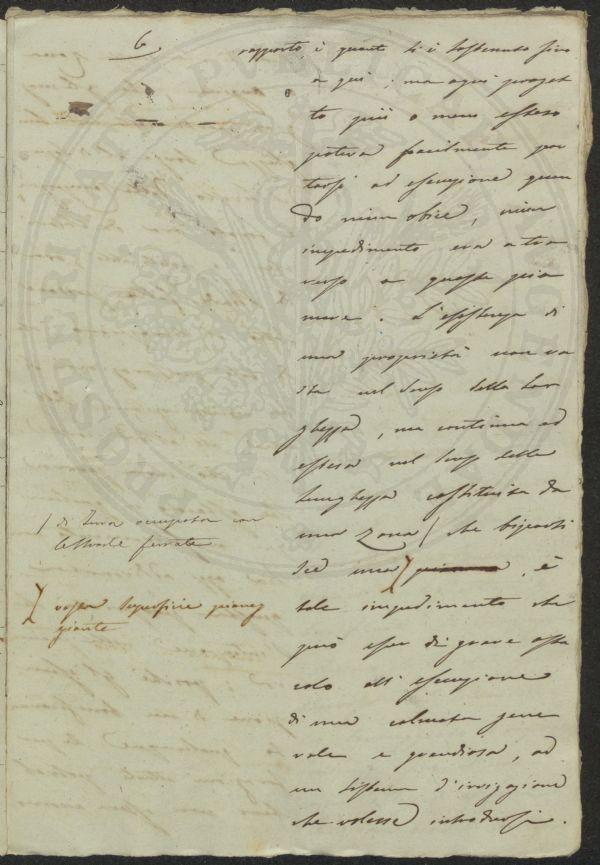 6
rapporto, è quanto si è sostenuto fino
a qui; ma ogni proget
to più o meno esteso
poteva facilmente por
tarsi ad esecuzione quan
do niun obice, niun
impedimento era a tra
verso a queste pia
nure. L'esistenza di
una proprietà non va
sta nel senso della lar
ghezza, ma continua ed
estesa nel senso della
lunghezza costituita da
una zona / che biparti
sce una } pianura, è
tale impedimento che
può esser di grave osta
colo all'esecuzione
di una colmata gene
rale e grandiosa, ad
un sistema d'irrigazione
che volesse introdursi.
/ di terra occupata con
le strade ferrate
} vasta superficie pianeg
giante